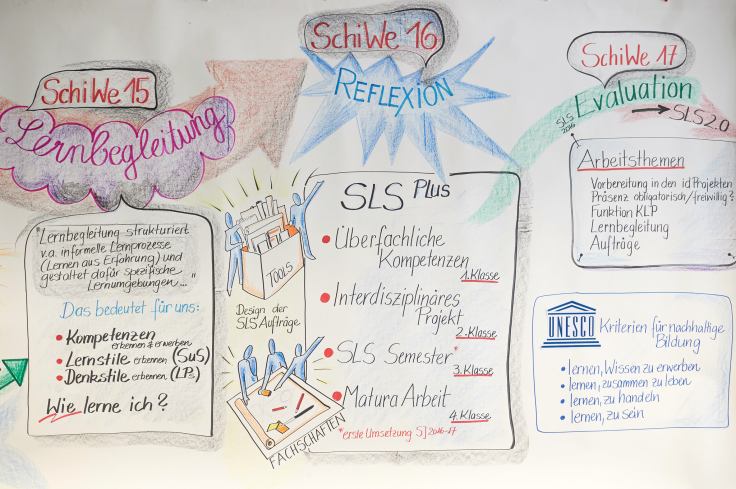 SchiWe 15
Lernbegleitung
"Lernbegleitung strukturiert
v.a. informelle Lernprozesse
(Lernen aus Erfahrung) und
gestaltet dafür spezifische
Lernumgebungen..."
Das bedeutet für uns:
• Kompetenzen
erkennen & erwerben
• Lernstile erkennen (SuS)
• Denkstile erkennen (LPs)
Wie lerne ich?
SchiWe 16
REFLEXION
TOOLS
Design der
SLS Aufträge
FACHSCHAFTEN
SLS Plus
• Überfachliche
Kompetenzen
1. Klasse
• Interdisziplinäres
Projekt
2. Klasse
• SLS Semester*
3. Klasse
• Matura Arbeit
4. Klasse
*erste Umsetzung SJ 2016-17
SchiWe 17
SLS
2016
Evaluation
→ SLS 2.0
Arbeitsthemen
Vorbereitung in den id Projekten
Präsenz obligatorisch/freiwillig?
Funktion KLP
Lernbegleitung
Aufträge
UNESCO
Kriterien für nachhaltige
Bildung
• lernen, Wissen zu erwerben
• lernen, zusammen zu leben
• lernen, zu handeln
• lernen, zu sein